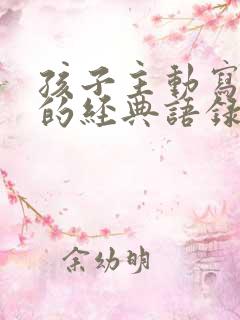 孩子主動寫
的經典語錄
余幼明